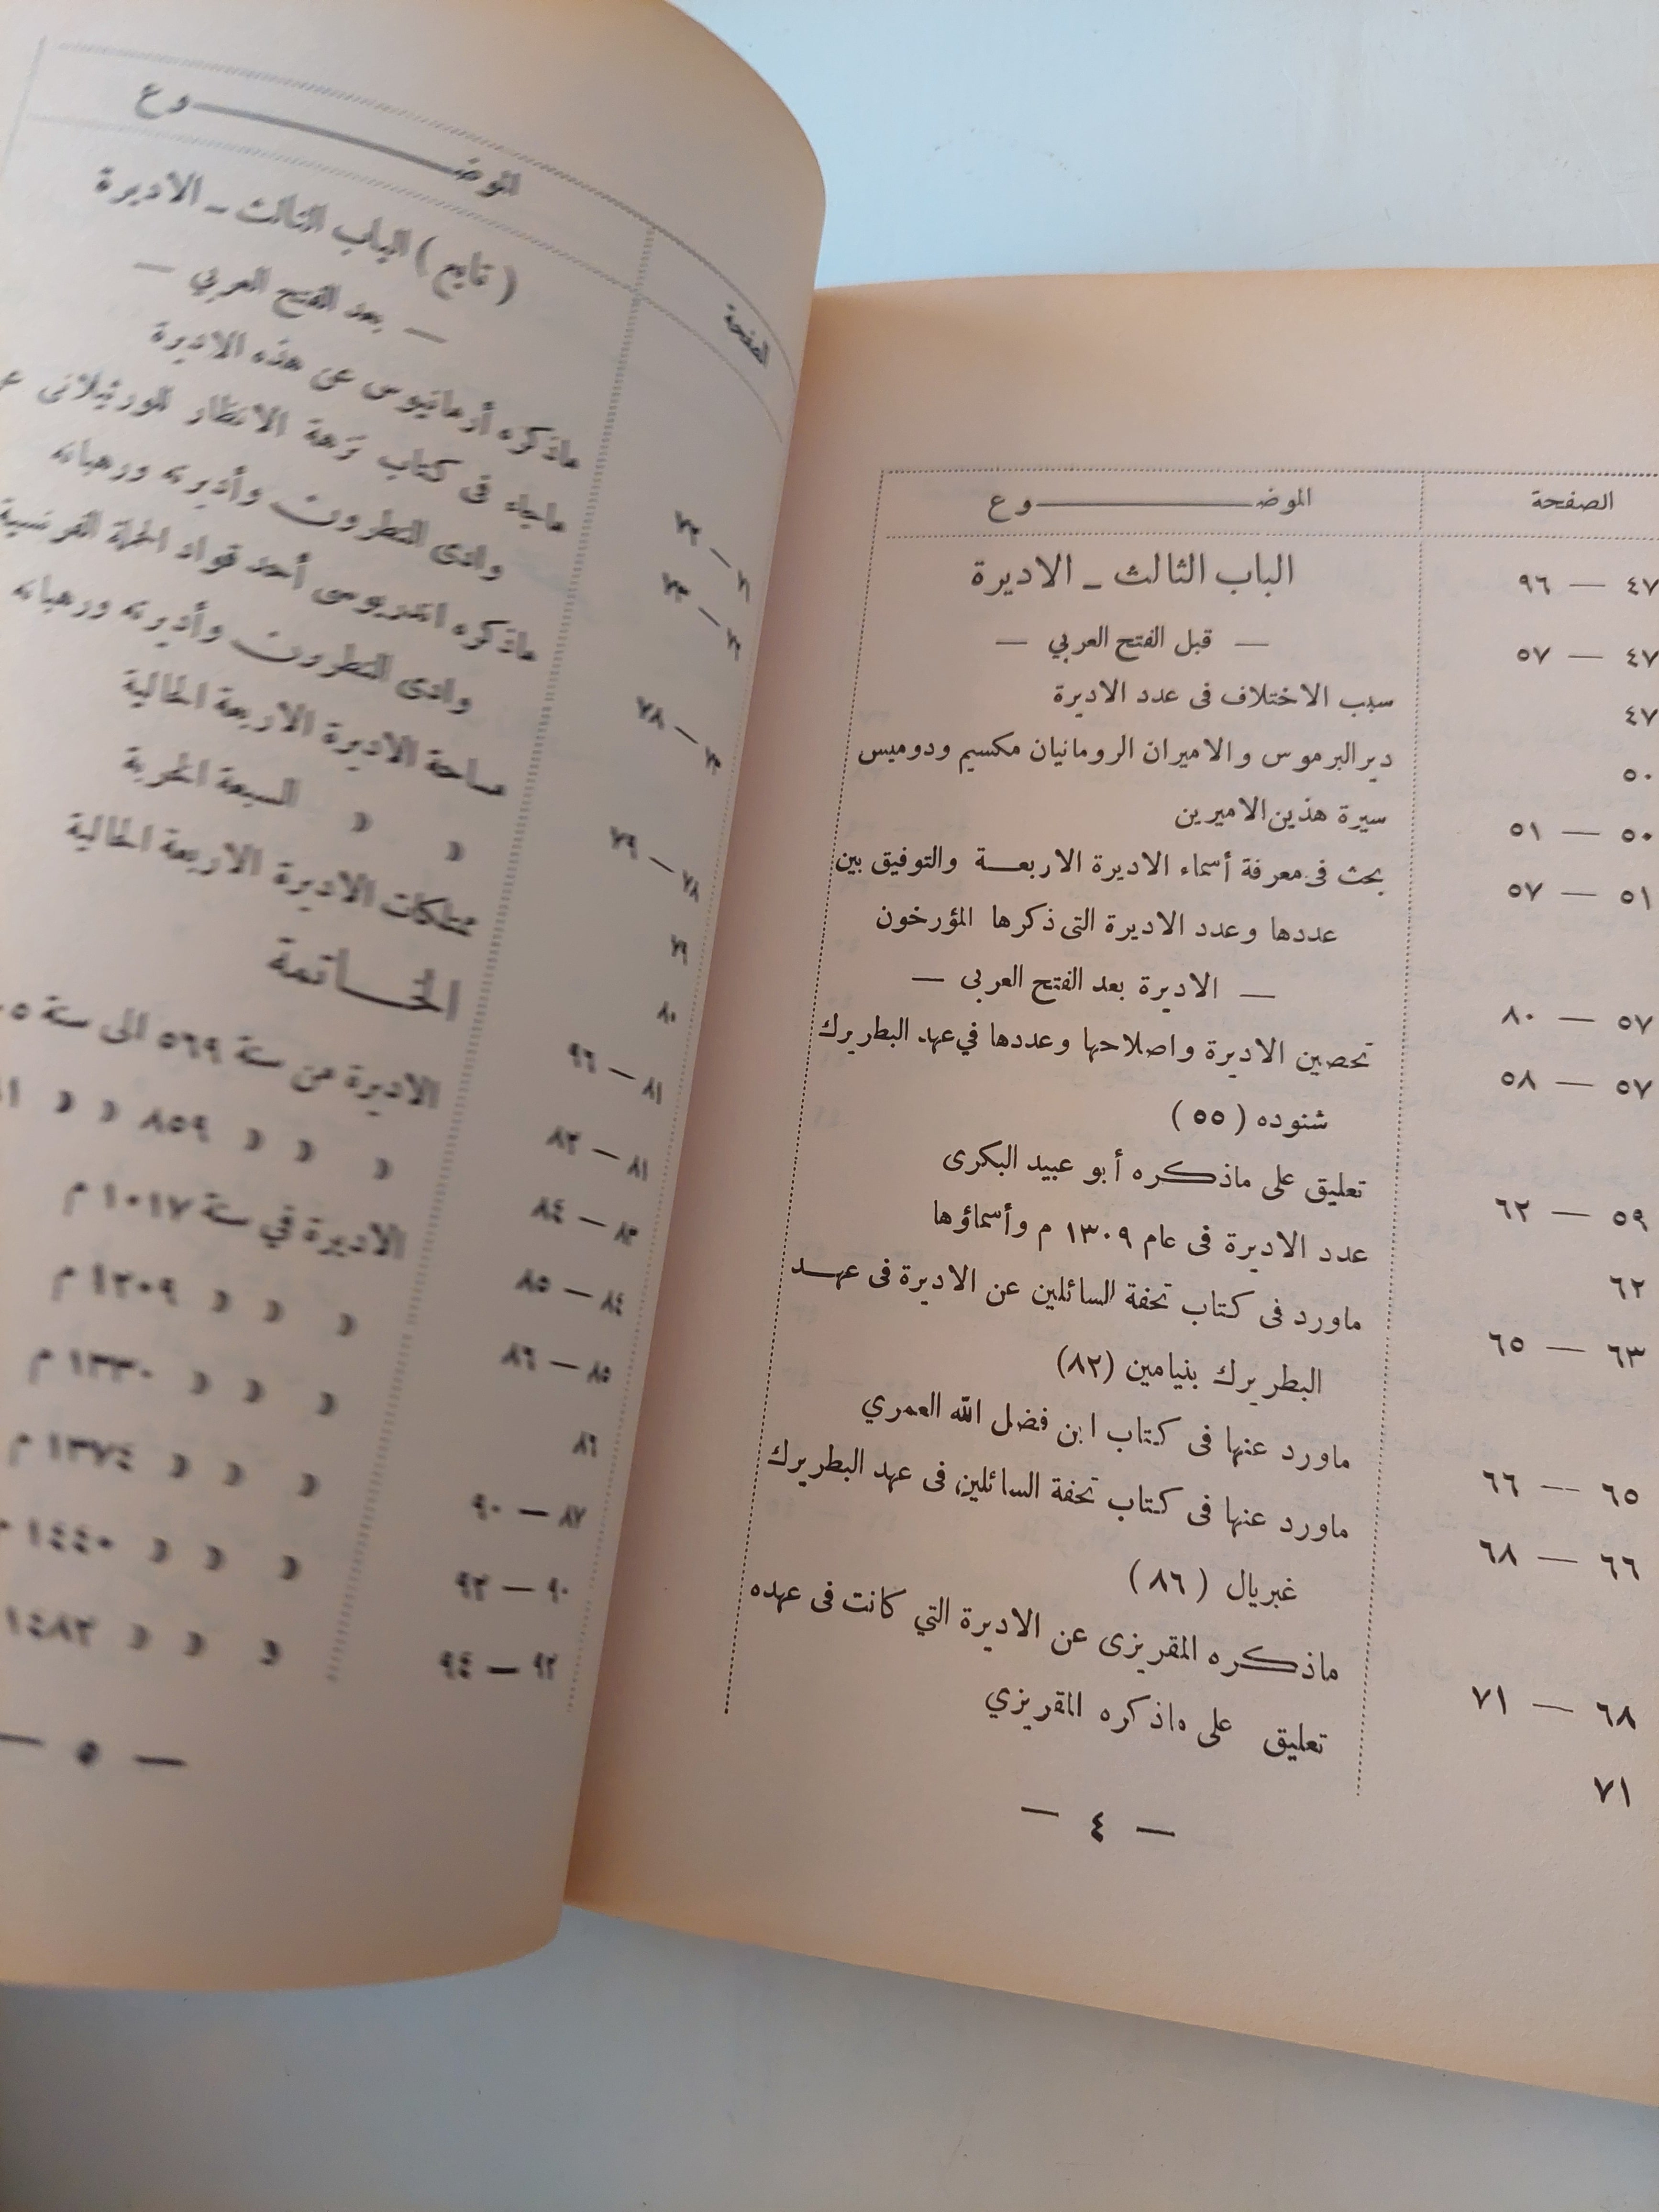 الصفحة الموضوع
٤٧ — ٩٦ الباب الثالث ـ الاديرة
٤٧ — ٥٧ — قبل الفتح العربي —
٤٧ سبب الاختلاف فى عدد الاديرة
٥٠ دير البرموس والاميران الرومانيان مكسيم ودوميس
٥٠ — ٥١ سيرة هذين الاميرين
٥١ — ٥٧ بحث فى معرفة أسماء الاديرة الاربعة والتوفيق بين
عددها وعدد الاديرة التى ذكرها المؤرخون
٥٧ — ٨٠ — الاديرة بعد الفتح العربى —
٥٧ — ٥٨ تحصين الاديرة واصلاحها وعددها في عهد البطريرك
شنوده ( ٥٥ )
٥٩ — ٦٢ تعليق على ماذكره أبو عبيد البكرى
٦٢ عدد الاديرة فى عام ١٣٠٩ م وأسماؤها
٦٣ — ٦٥ ماورد فى كتاب تحفة السائلين عن الاديرة فى عهد
البطريرك بنيامين (٨٢)
٦٥ — ٦٦ ماورد عنها فى كتاب ابن فضل الله العمري
٦٦ — ٦٨ ماورد عنها فى كتاب تحفة السائلين فى عهد البطريرك
غبريال ( ٨٦ )
٦٨ — ٧١ ماذكره المقريزى عن الاديرة التي كانت فى عهده
٧١ تعليق على ماذكره المقريزي
— ٤ —
الصفحة الموضوع
( تابع ) الباب الثالث ـ الاديرة
— بعد الفتح العربي —
ماذكره عن هذه الاديرة
ماجاء فى كتاب نزهة الانظار للورثيلانى
وادى النطرون وأديرته ورهبانه
ماذكره أحد قواد الحملة الفرنسية
وادى النطرون وأديرته ورهبانه
٧٨ — ٧٩ مساحة الاديرة الاربعة الحالية
٧٩ » » السبعة الخربة
٨٠ ممتلكات الاديرة الاربعة الحالية
٨١ — ٩٦ الخاتمة
٨١ — ٨٣ الاديرة من سنة ٥٦٩ الى سنة
٨٣ — ٨٤ » » » ٨٥٩ » »
٨٤ — ٨٥ الاديرة في سنة ١٠١٧ م
٨٥ — ٨٦ » » » ١٢٠٩ م
٨٦ » » » ١٣٣٠ م
٨٧ — ٩٠ » » » ١٣٧٤ م
٩٠ — ٩٢ » » » ١٤٤٠
٩٢ — ٩٤ » » » ١٤٨٢
— ٥ —